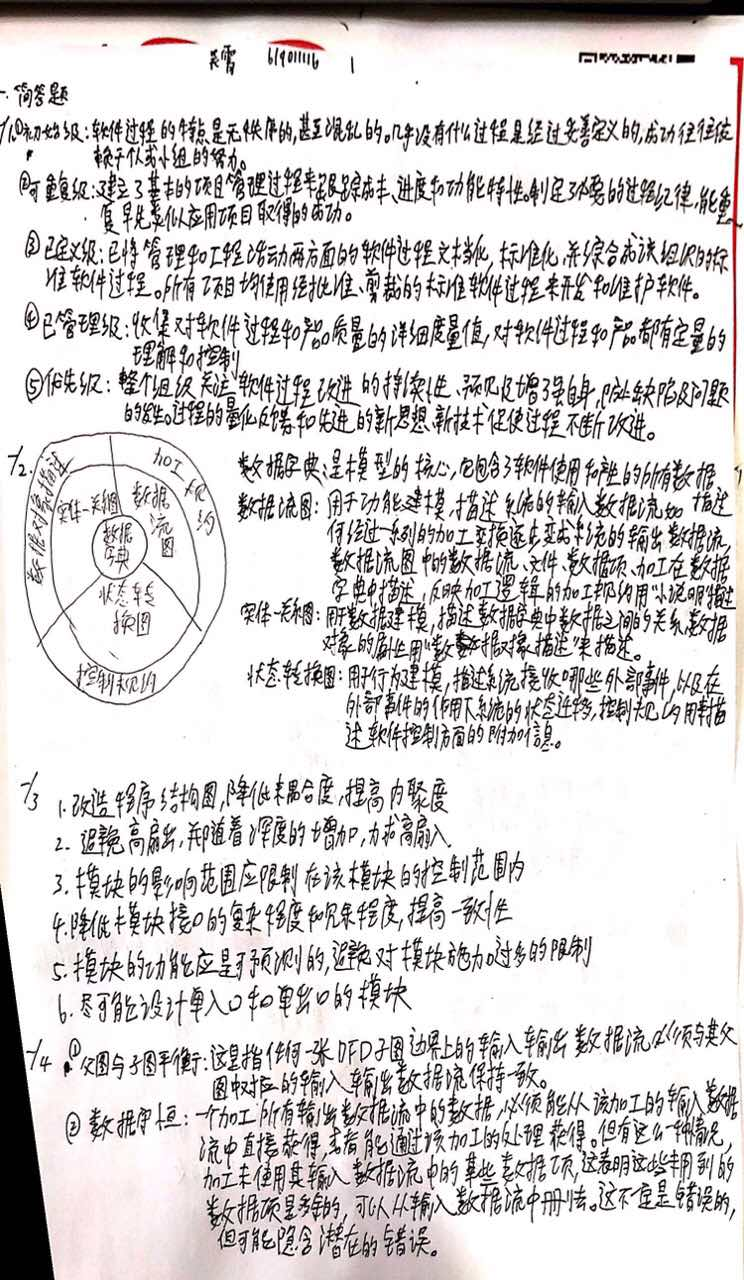 吴雷 619011116 1
一. 简答题
1. ①初始级:软件过程的特点是无秩序的,甚至混乱的。几乎没有什么过程是经过妥善定义的,成功往往依
赖于个人或小组的努力。
②可重复级:建立了基本的项目管理过程来跟踪成本、进度和功能特性。制定了必要的过程纪律,能重
复早先类似应用项目取得的成功。
③已定义级:已将管理和工程活动两方面的软件过程文档化,标准化,并综合成该组织的标
准软件过程。所有项目均使用经批准、剪裁的标准软件过程来开发和维护软件。
④已管理级:收集对软件过程和产品质量的详细度量值,对软件过程和产品都有定量的
理解和控制
⑤优先级:整个组织关注软件过程改进的持续性、预见及增强自身,防止缺陷及问题
的发生。过程的量化反馈和先进的新思想、新技术促使过程不断改进。
2.
数据对象描述
加工规约
实体-关系图
数据流图
数据字典
状态转换图
控制规约
数据字典:是模型的核心,它包含了软件使用和产生的所有数据
数据流图:用于功能建模,描述系统的输入数据流如
何经过一系列的加工变换逐步变成系统的输出数据流,
数据流图中的数据流、文件、数据项、加工在数据
字典中描述,反映加工逻辑的加工规约用“小说明”描述
实体-关系图:用于数据建模,描述数据字典中数据之间的关系,数据
对象的属性用“数据对象描述”来描述。
状态转换图:用于行为建模,描述系统接收哪些外部事件,以及在
外部事件的作用下系统的状态迁移,控制规约用来描
述软件控制方面的附加信息。
3 1. 改造程序结构图,降低耦合度,提高内聚度
2. 避免高扇出,并随着深度的增加,力求高扇入
3. 模块的影响范围应限制在该模块的控制范围内
4. 降低模块接口的复杂程度和冗余程度,提高一致性
5. 模块的功能应是可预测的,避免对模块施加过多的限制
6. 尽可能设计单入口和单出口的模块
4 ①父图与子图平衡:这是指任何一张DFD子图边界上的输入输出数据流必须与其父
图中对应的输入输出数据流保持一致。
②数据守恒:一个加工所有输出数据流中的数据,必须能从该加工的输入数据
流中直接获得,或者能通过该加工的处理获得。但有这么一种情况,
加工未使用其输入数据流中的某些数据项,这表明这些未用到的
数据项是多余的,可以从输入数据流中删去。这不一定是错误的,
但可能隐含潜在的错误。